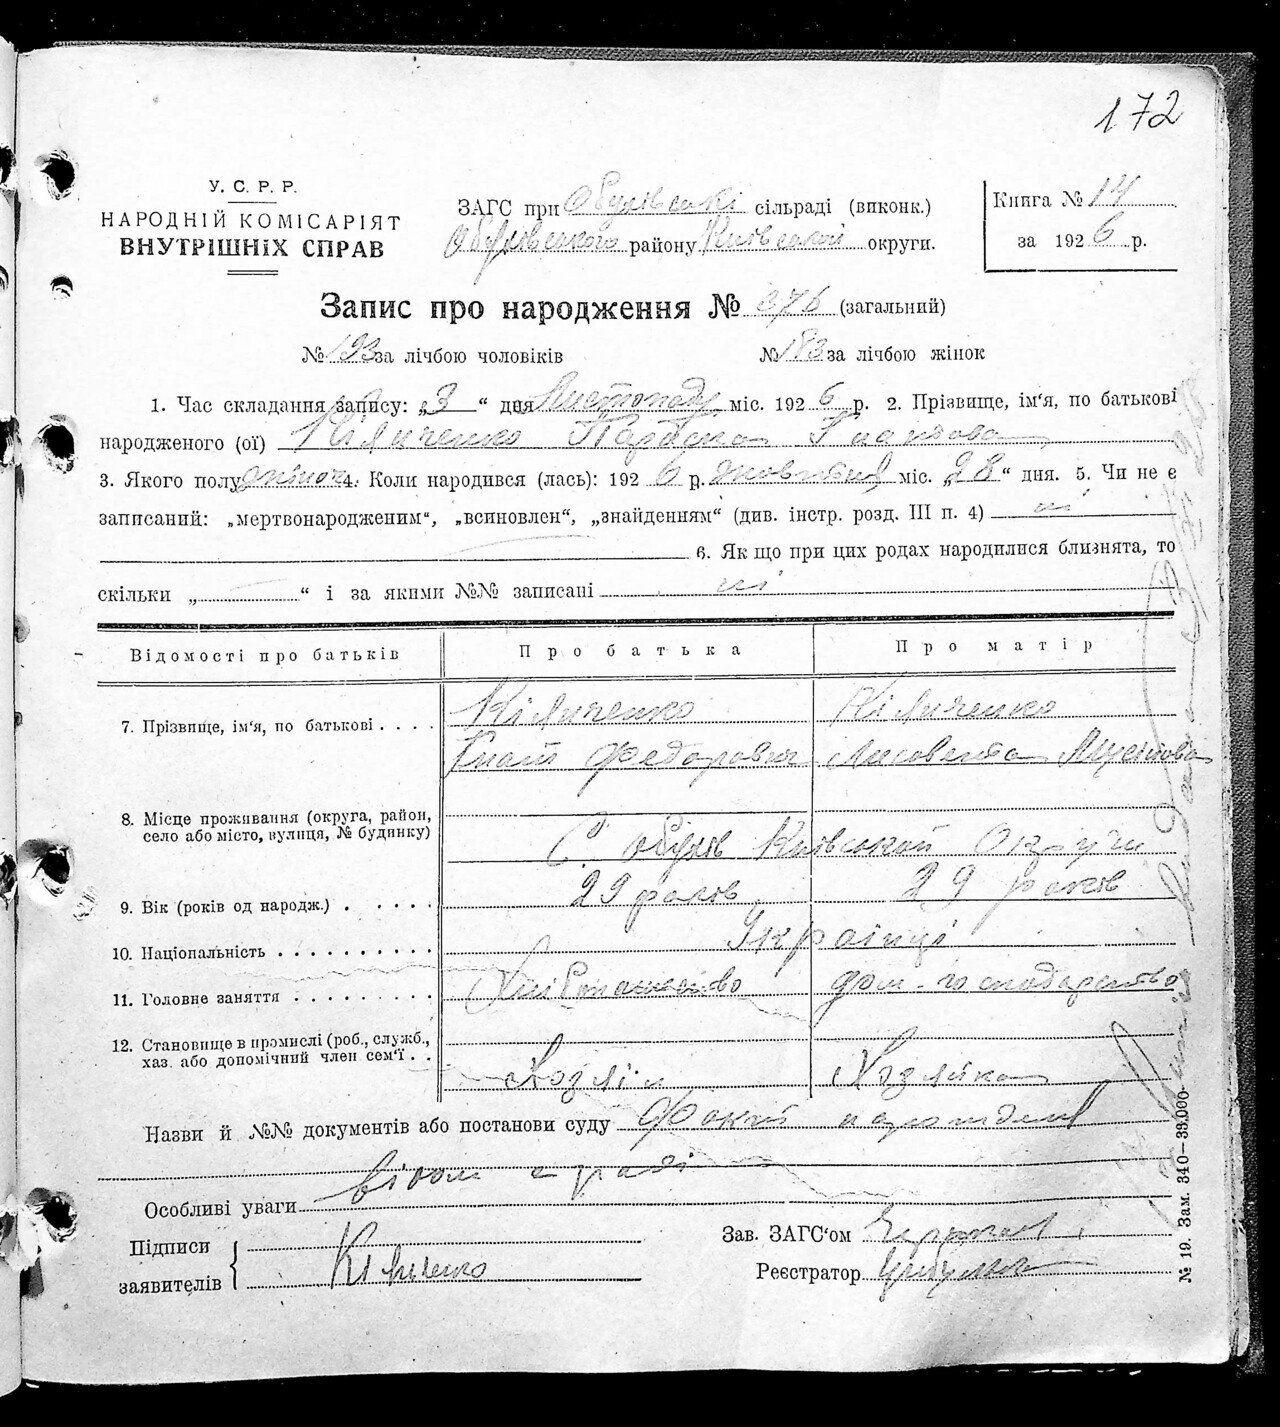 172
У. С. Р. Р.
НАРОДНІЙ КОМІСАРІЯТ
ВНУТРІШНІХ СПРАВ
ЗАГС при Обухівські сільраді (виконк.)
Обухівського району Київської округи.
Книга № 14
за 1926 р.
Запис про народження № 376 (загальний)
№ 193 за лічбою чоловіків № 183 за лічбою жінок
1. Час складання запису: „3“ дня Листопаду міс. 1926 р. 2. Прізвище, ім'я, по батькові
народженого (ої) Кіличенко Параска Гнатова
3. Якого полу жіноч 4. Коли народився (лась): 1926 р. жовтня міс. „28“ дня. 5. Чи не є
записаний: „мертвонародженим“, „всиновлен“, „знайденням“ (див. інстр. розд. III п. 4) ні
6. Як що при цих родах народилися близнята, то
скільки „ “ і за якими №№ записані ні
Відомості про батьків Про батька Про матір
7. Прізвище, ім'я, по батькові . . . . Кіличенко Кіличенко
Гнат Федорович Лисовета
8. Місце проживання (округа, район,
село або місто, вулиця, № будинку) С. Обухів Київської Округи
9. Вік (років од народж.) . . . . . 29 років 29 років
10. Національність . . . . . . . . . . Українці
11. Головне заняття . . . . . . . . . Хліборобство дом-господарство
12. Становище в промислі (роб., служб.,
хаз. або допомічний член сем'ї . . Хазяїн Хазяйка
Назви й №№ документів або постанови суду
Особливі уваги
Підписи
заявителів Кіличенко
Зав. ЗАГС'ом
Реєстратор
№ 19. Зам. 340—33.000